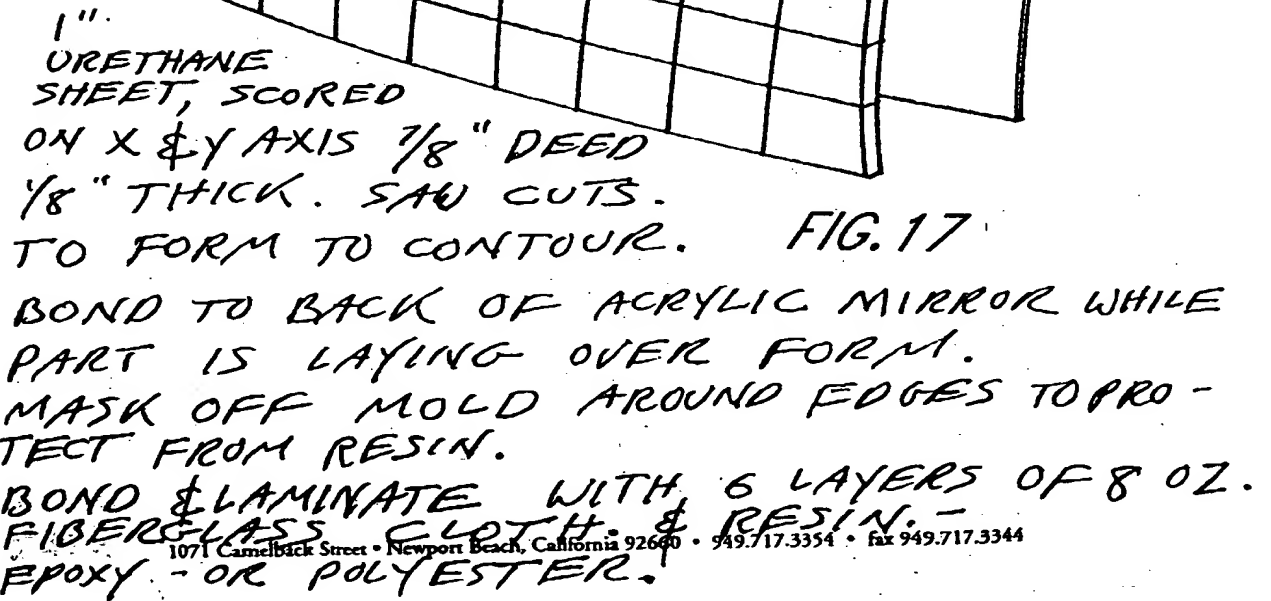 1".
URETHANE
SHEET, SCORED
ON X & Y AXIS 7/8" DEED
1/8" THICK. SAW CUTS.
TO FORM TO CONTOUR.
FIG. 17
BOND TO BACK OF ACRYLIC MIRROR WHILE
PART IS LAYING OVER FORM.
MASK OFF MOLD AROUND EDGES TO PRO-
TECT FROM RESIN.
BOND & LAMINATE WITH 6 LAYERS OF 8 OZ.
FIBERGLASS CLOTH. & RESIN. -
1071 Camelback Street • Newport Beach, California 92660 • 949.717.3354 • fax 949.717.3344
EPOXY - OR POLYESTER.